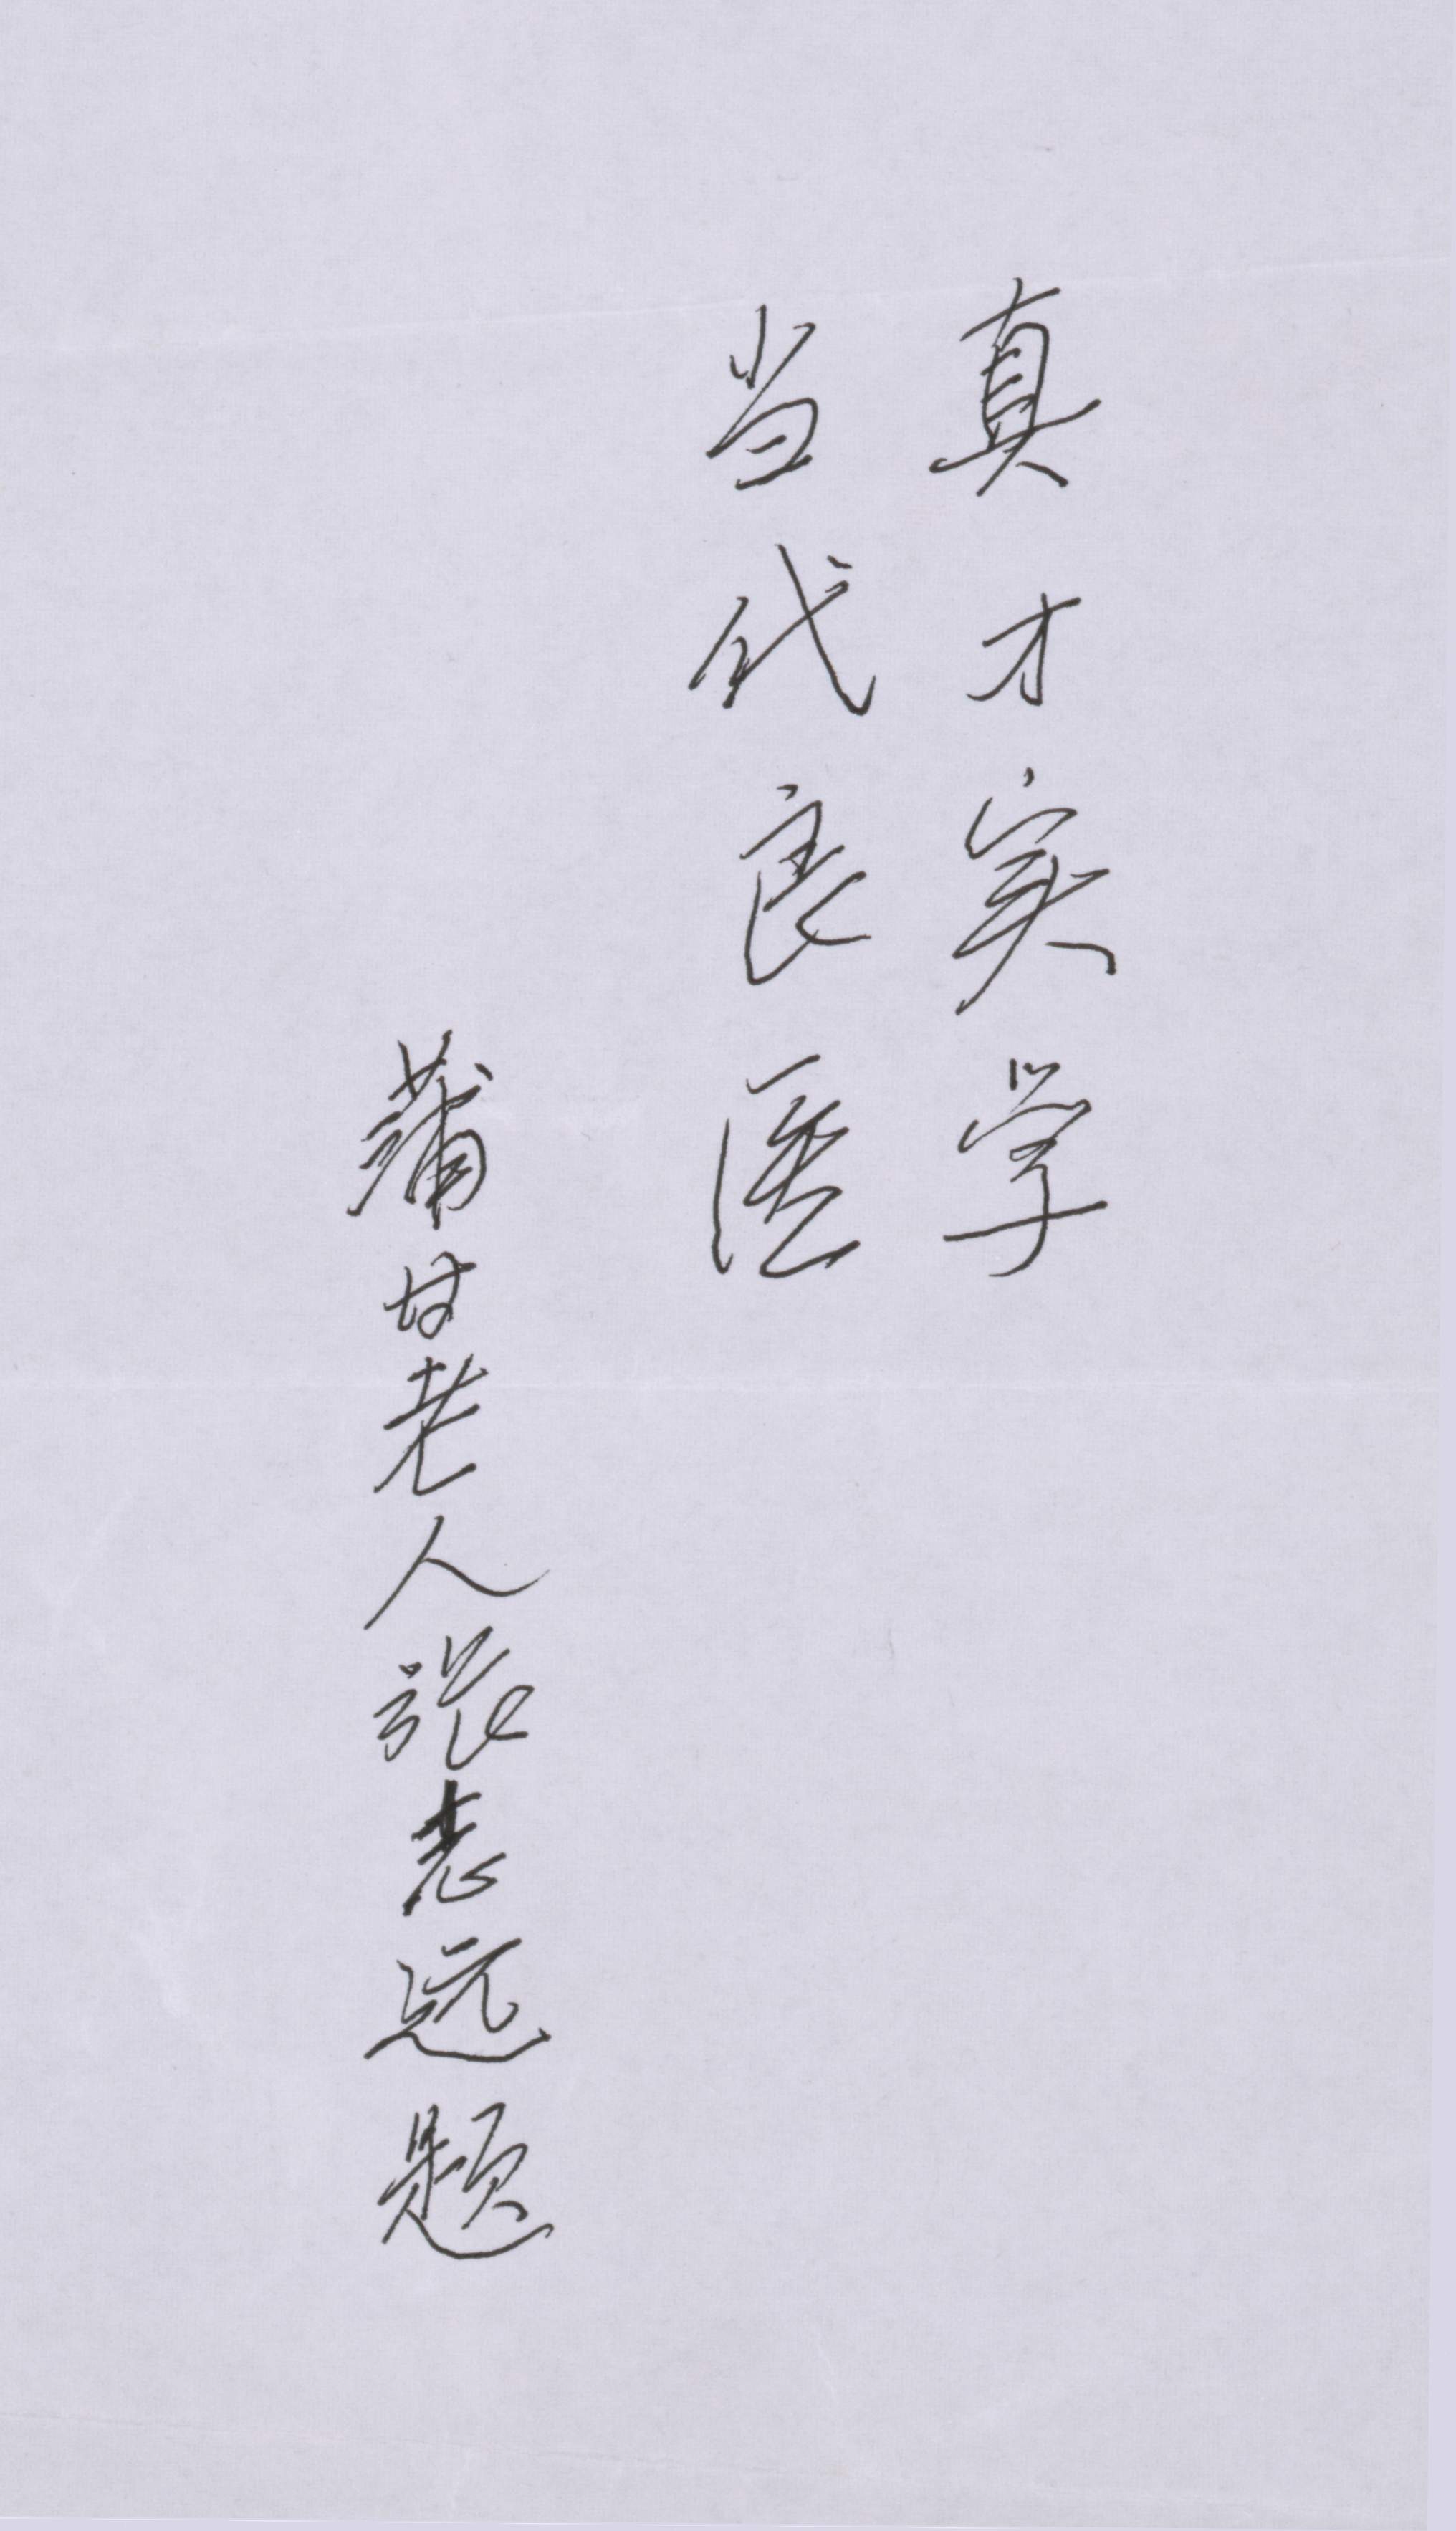 真才实学
当代良医
蒲甘老人张志远题